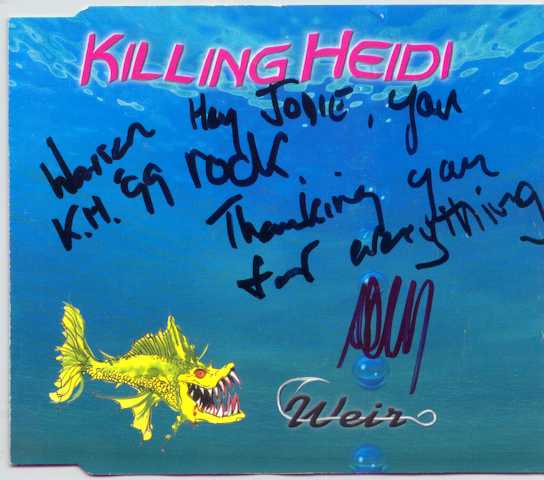 KILLING HEIDI
Hey JODIE, you
rock.
Thanking you
for everything
Warren
K.H. '99
Weir